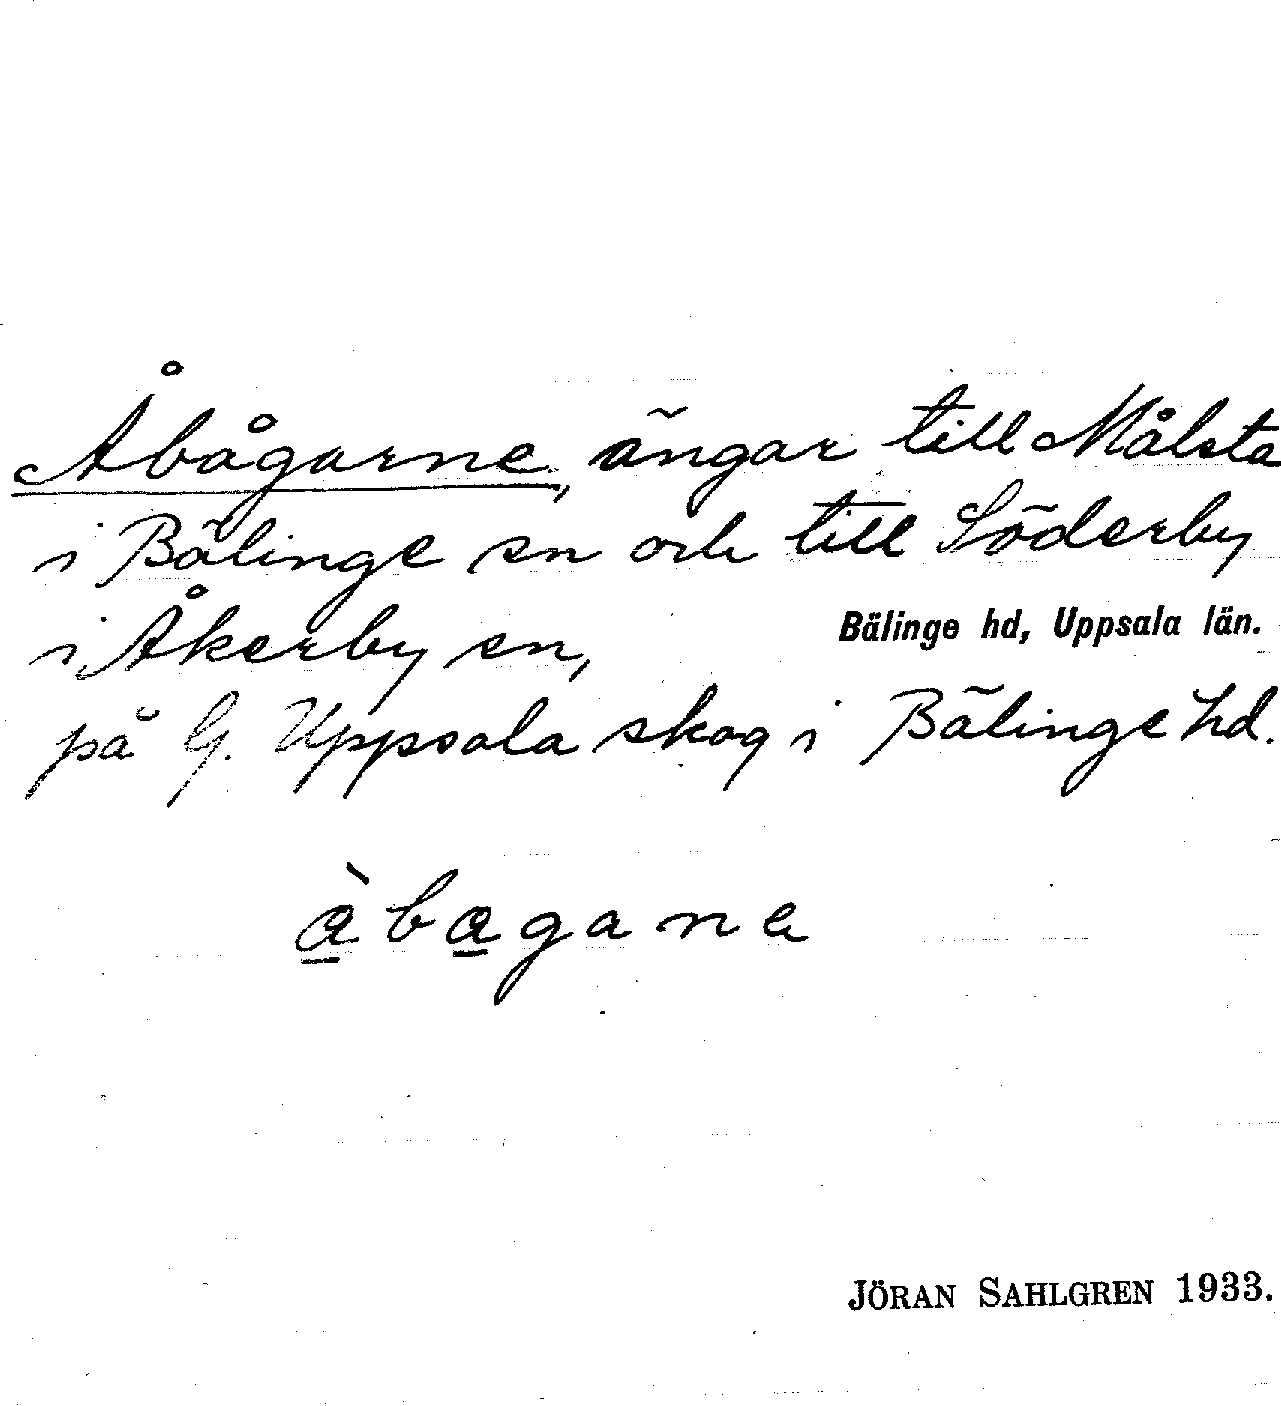 Åbågarne, ängar till Målsta
i Bälinge sn och till Söderby
i Åkerby sn,
Bälinge hd, Uppsala län.
på G. Uppsala skog i Bälinge hd.
à̲ba̲gana
JÖRAN SAHLGREN 1933.